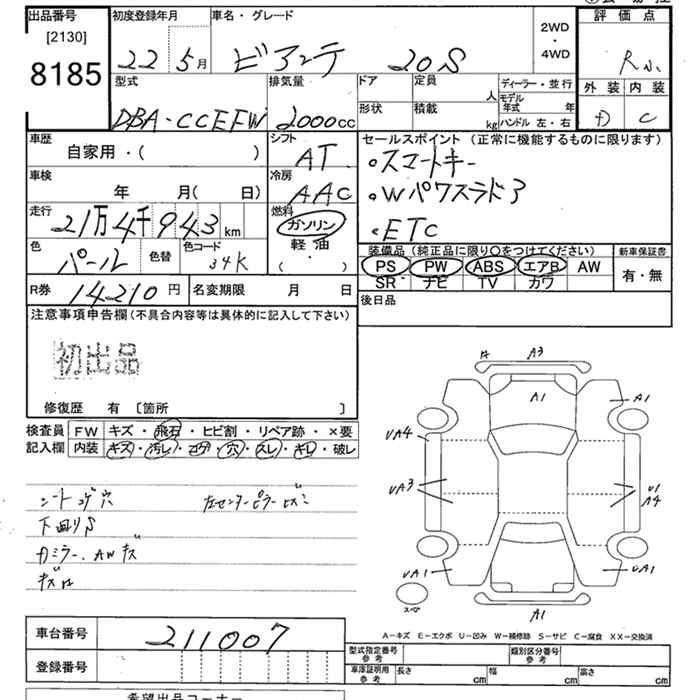 出品番号 初度登録年月 車名・グレード 2WD・4WD 評価点
[2130]
8185
22 5月 ビアンテ 20S R
型式 排気量 ドア 定員 人 ディーラー・並行 外装 内装
形状 積載 kg モデル年式 年 ハンドル 左・右
DBA-CCEFW 2000cc D C
車歴 自家用・( ) シフト AT
セールスポイント (正常に機能するものに限ります)
・スマートキー
・Wパワスラドア
・ETC
車検 年 月(日) 冷房 AAC
走行 21万4千943km 燃料 ガソリン 軽油 ( ・ )
色 パール 色替 色コード 34K
装備品 (純正品に限り○をつけてください) 新車保証書
PS PW ABS エアB AW 有・無
SR ナビ TV カワ
R券 14210円 名変期限 月 日 後日品
注意事項申告欄(不具合内容等は具体的に記入して下さい)
初出品
修復歴 有 〔箇所 〕
検査員記入欄 FW キズ・飛石・ヒビ割・リペア跡・×要
内装 キズ・汚レ・コゲ・穴・スレ・キレ・破レ
シートコゲ穴 左センターピラービズミ
下廻りS
カミラー、AWキズ
A A3
A1 A1
UA4
UA3 U1 A4
UA1 UA1
スペア A1
A-キズ E-エクボ U-凹み W-補修跡 S-サビ C-腐食 XX-交換済
車台番号 211007
登録番号
型式指定番号 参考 類別区分番号 参考
車庫証明用 参考 長さ cm 幅 cm 高さ cm
希望出品コーナー